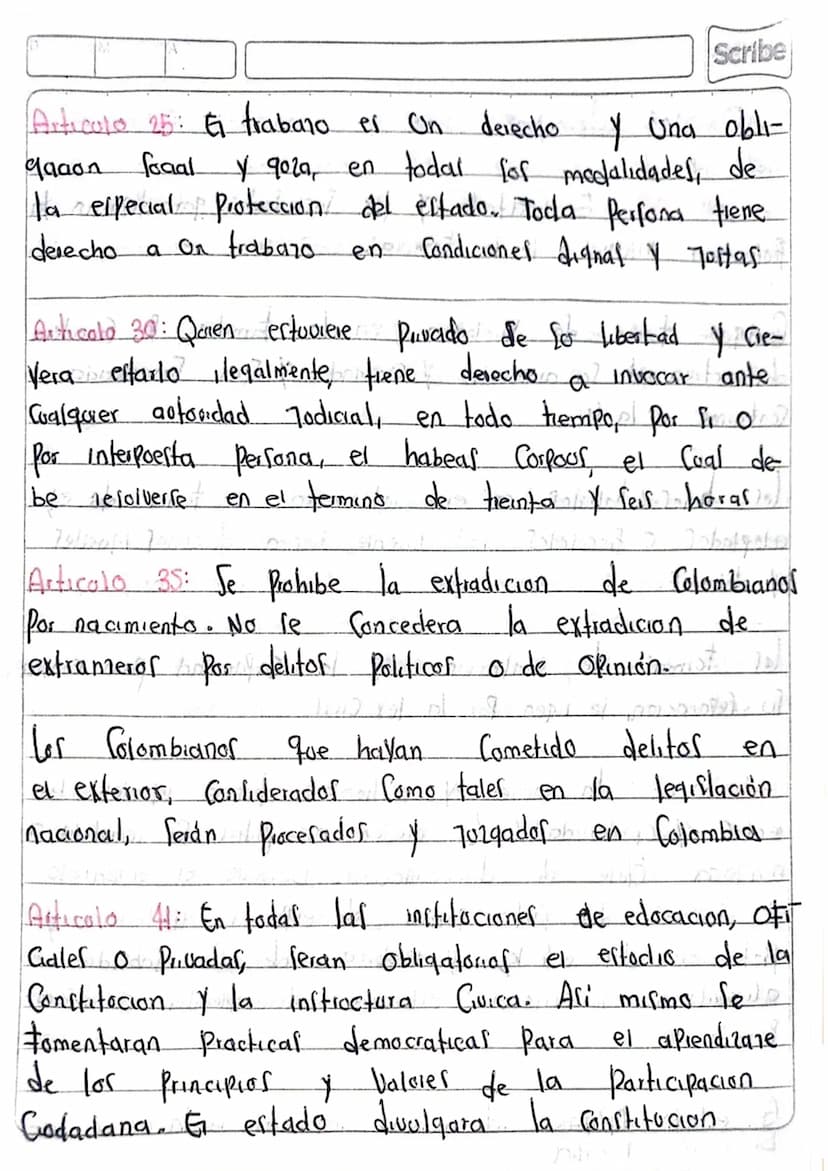 D M A
Scribe
Articulo 25: El trabajo es un derecho y una obli-
gacion social y goza, en todas sus modalidades, de
la especial proteccion del estado. Toda persona tiene
derecho a un trabajo en condiciones dignas y justas
Articulo 30: Quien estuviere privado de su libertad y cre-
yera estarlo ilegalmente, tiene derecho a invocar ante
cualquier autoridad judicial, en todo tiempo, por si o
por interpuesta persona, el habeas corpus, el cual de-
be resolverse en el termino de treinta y seis horas
Articulo 35: Se prohibe la extradicion de Colombianos
por nacimiento. No se concedera la extradicion de
extranjeros por delitos politicos o de opinión.
Los Colombianos que hayan cometido delitos en
el exterior, considerados como tales en la legislación
nacional, serán procesados y juzgados en Colombia
Articulo 41: En todas las instituciones de educacion, ofi
ciales o privadas, seran obligatorios el estudio de la
Constitucion y la instructura Civica. Asi mismo se
fomentaran practicas democraticas para el aprendizaje
de los principios y valores de la participacion
Ciudadana. El estado divulgara la constitucion